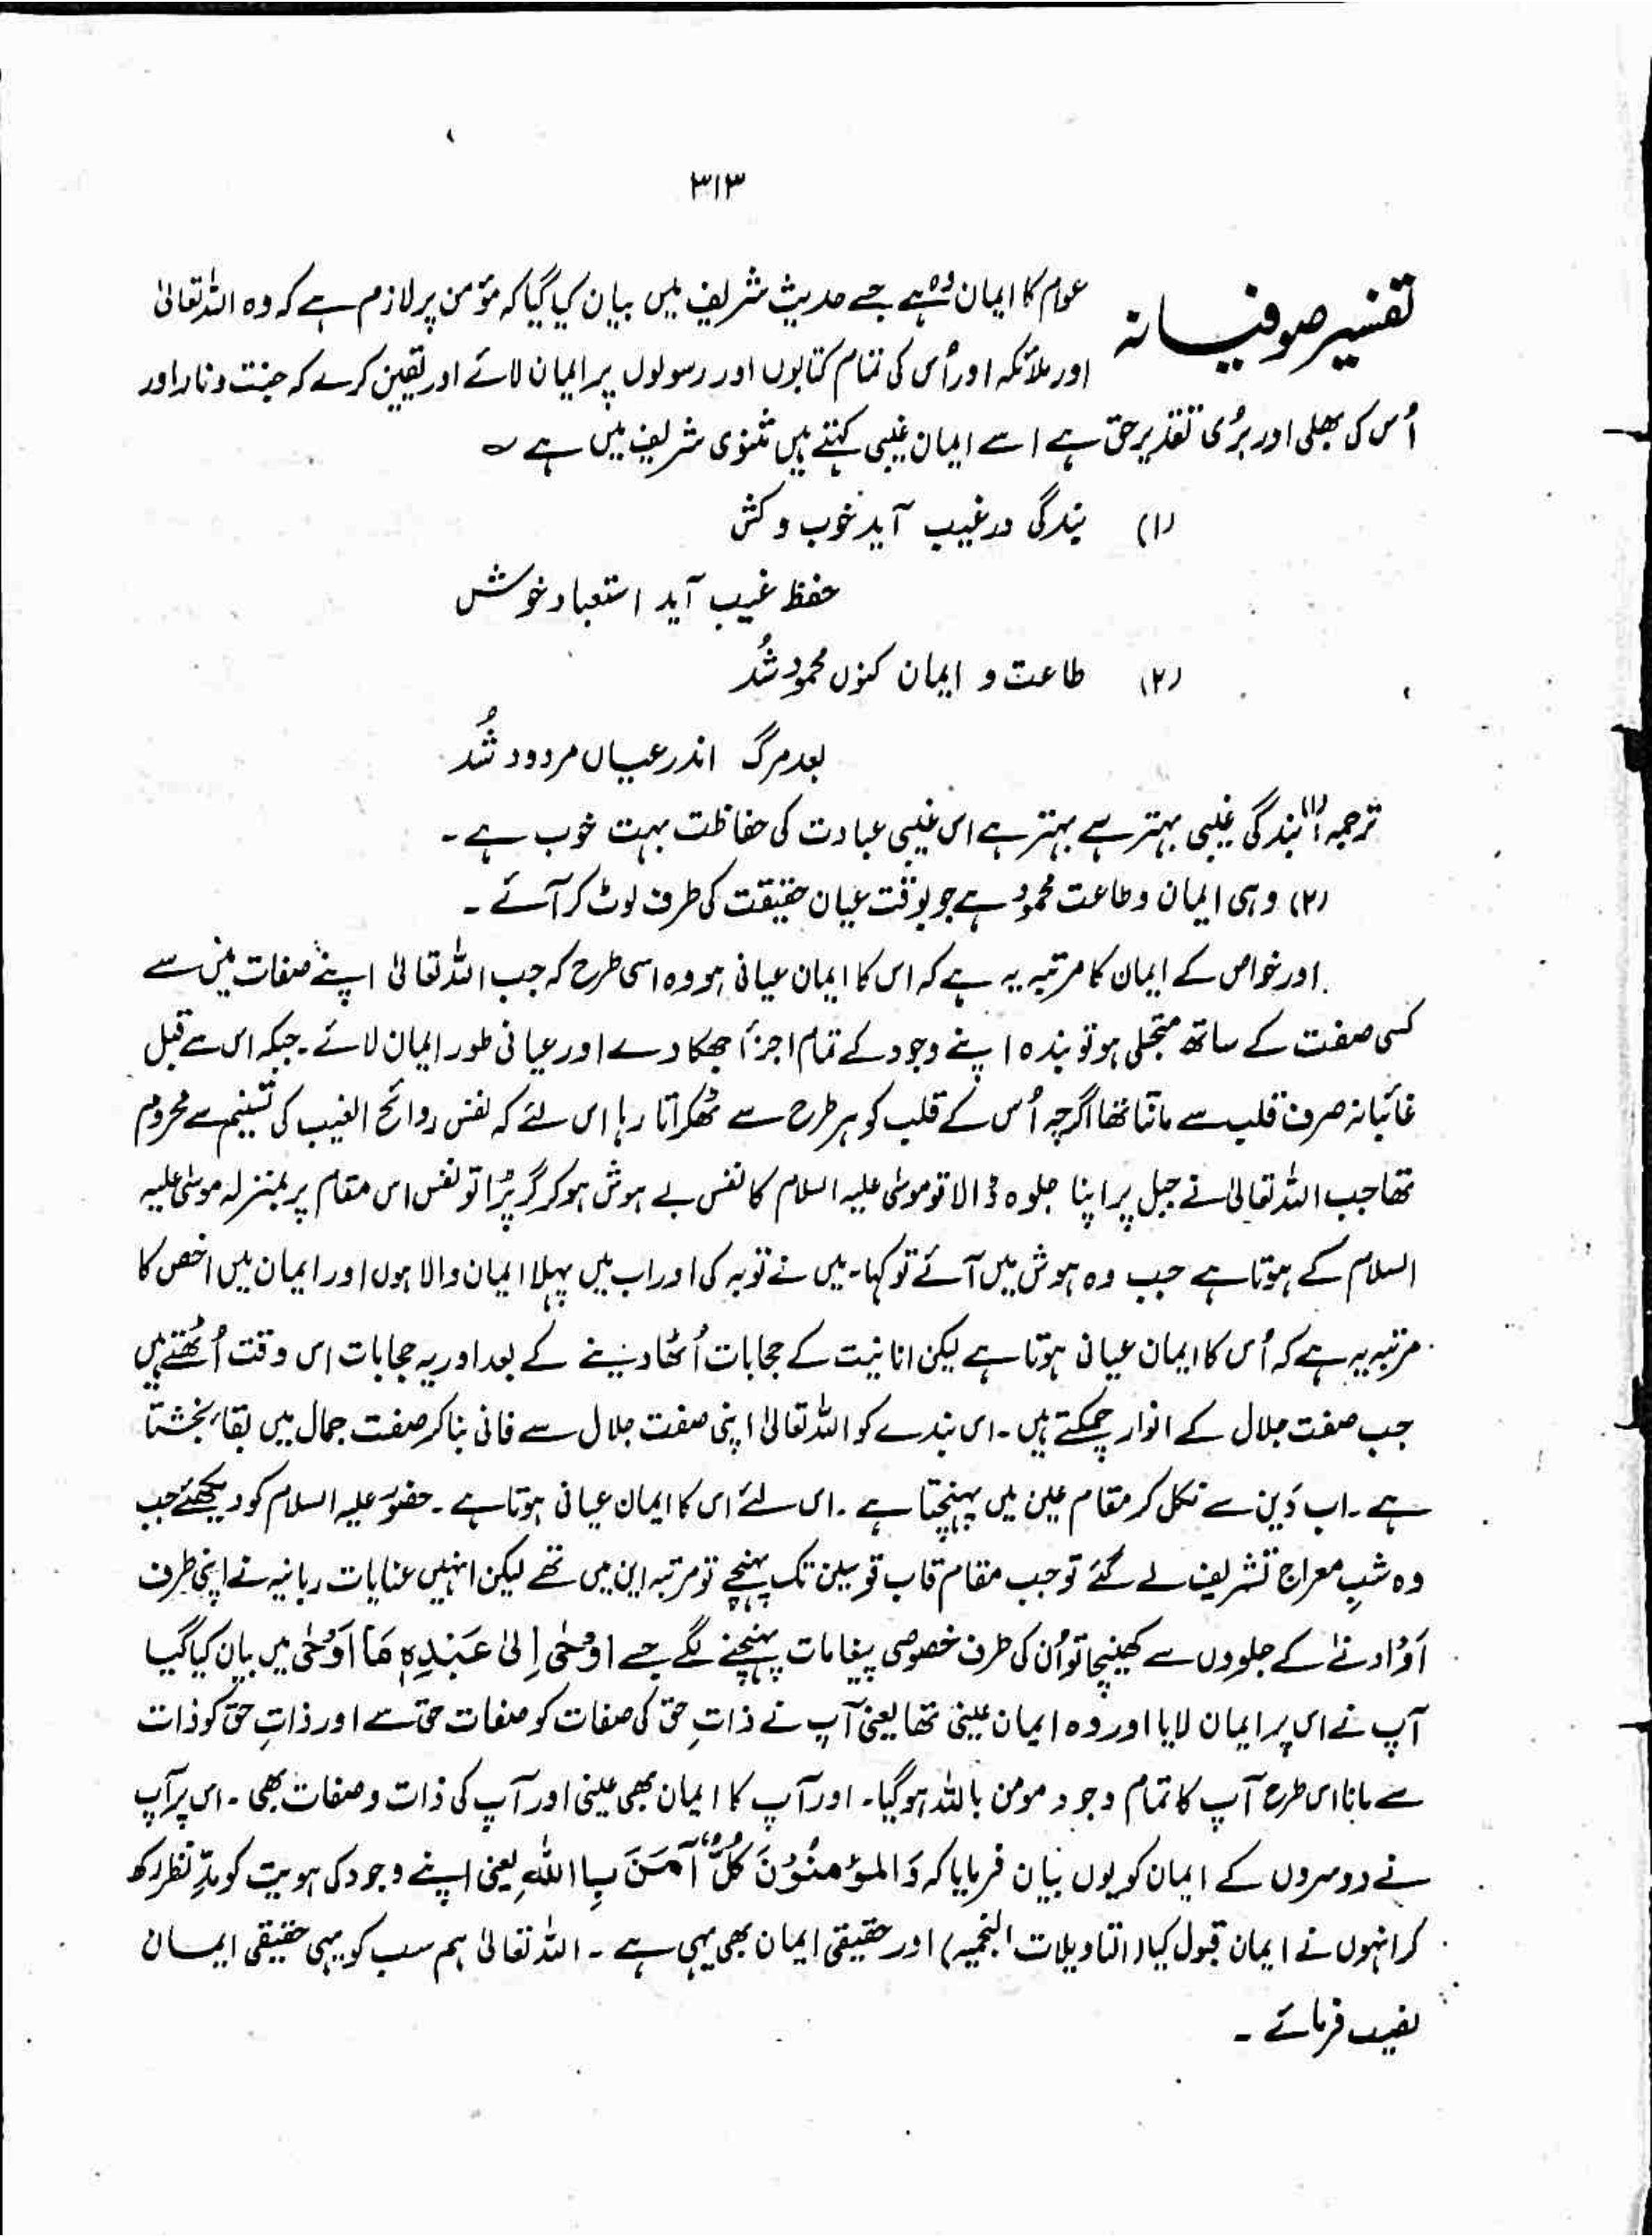 ۳۱۳
تفسیر صوفیانہ
عوام کا ایمان وہ ہے جسے حدیث شریف میں بیان کیا گیا کہ مؤمن پر لازم ہے کہ وہ اللہ تعالیٰ
اور ملائکہ اور اُس کی تمام کتابوں اور رسولوں پر ایمان لائے اور یقین کرے کہ جنت و نار اور
اُس کی بھلی اور بُری تقدیر حق ہے اسے ایمان غیبی کہتے ہیں مثنوی شریف میں ہے ؎
(۱) بندگی در غیب آید خوب و کش
حفظ غیب آید استعباد خوش
(۲) طاعت و ایمان کنوں محمود شُد
بعد مرگ اندر عیاں مردود شُد
ترجمہ (۱) بندگی غیبی بہتر سے بہتر ہے اس غیبی عبادت کی حفاظت بہت خوب ہے ۔
(۲) وہی ایمان و طاعت محمود ہے جو بوقت عیان حقیقت کی طرف لوٹ کر آئے ۔
اور خواص کے ایمان کا مرتبہ یہ ہے کہ اس کا ایمان عیانی ہو وہ اسی طرح کہ جب اللہ تعالیٰ اپنے صفات میں سے
کسی صفت کے ساتھ متجلی ہو تو بندہ اپنے وجود کے تمام اجزأ جھکا دے اور عیانی طور ایمان لائے ۔ جبکہ اس سے قبل
غائبانہ صرف قلب سے مانتا تھا اگرچہ اُس کے قلب کو ہر طرح سے ٹھکراتا رہا اس لئے کہ نفس روائح الغیب کی تنسیم سے محروم
تھا جب اللہ تعالیٰ نے جبل پر اپنا جلوہ ڈالا تو موسیٰ علیہ السلام کا نفس بے ہوش ہو کر گر پڑا تو نفس اس مقام پر بمنزلہ موسیٰ علیہ
السلام کے ہوتا ہے جب وہ ہوش میں آئے تو کہا ۔ میں نے توبہ کی اور اب میں پہلا ایمان والا ہوں اور ایمان میں اخص کا
مرتبہ یہ ہے کہ اُس کا ایمان عیانی ہوتا ہے لیکن انانیت کے حجابات اُٹھا دینے کے بعد اور یہ حجابات اس وقت اُٹھتے ہیں
جب صفت جلال کے انوار چمکتے ہیں ۔ اس بندے کو اللہ تعالیٰ اپنی صفت جلال سے فانی بنا کر صفت جمال میں بقاء بخشتا
ہے ۔ اب دَین سے نکل کر مقام عین میں پہنچتا ہے ۔ اس لئے اس کا ایمان عیانی ہوتا ہے ۔ حضور علیہ السلام کو دیکھئے جب
وہ شبِ معراج تشریف لے گئے تو جب مقام قاب قوسین تک پہنچے تو مرتبہ این میں تھے لیکن انہیں عنایات ربانیہ نے اپنی طرف
اَوْ ادنےٰ کے جلووں سے کھینچا تو اُن کی طرف خصوصی پیغامات پہنچنے لگے جسے اوحٰی اِلیٰ عَبْدِہٖ مَا اَوْحٰی میں بیان کیا گیا
آپ نے اس پر ایمان لایا اور وہ ایمان عینی تھا یعنی آپ نے ذاتِ حق کی صفات کو صفات حق سے اور ذاتِ حق کو ذات
سے مانا اس طرح آپ کا تمام وجود مومن باللہ ہو گیا ۔ اور آپ کا ایمان بھی عینی اور آپ کی ذات و صفات بھی ۔ اس پر آپ
نے دوسروں کے ایمان کو یوں بیان فرمایا کہ وَالمؤمنُوْنَ کُلٌّ آمَنَ بِااللّٰهِ یعنی اپنے وجود کی ہویت کو مدِّ نظر رکھ
کر انہوں نے ایمان قبول کیا (التاویلات النجمیہ) اور حقیقی ایمان بھی یہی ہے ۔ اللہ تعالیٰ ہم سب کو یہی حقیقی ایمان
نصیب فرمائے ۔